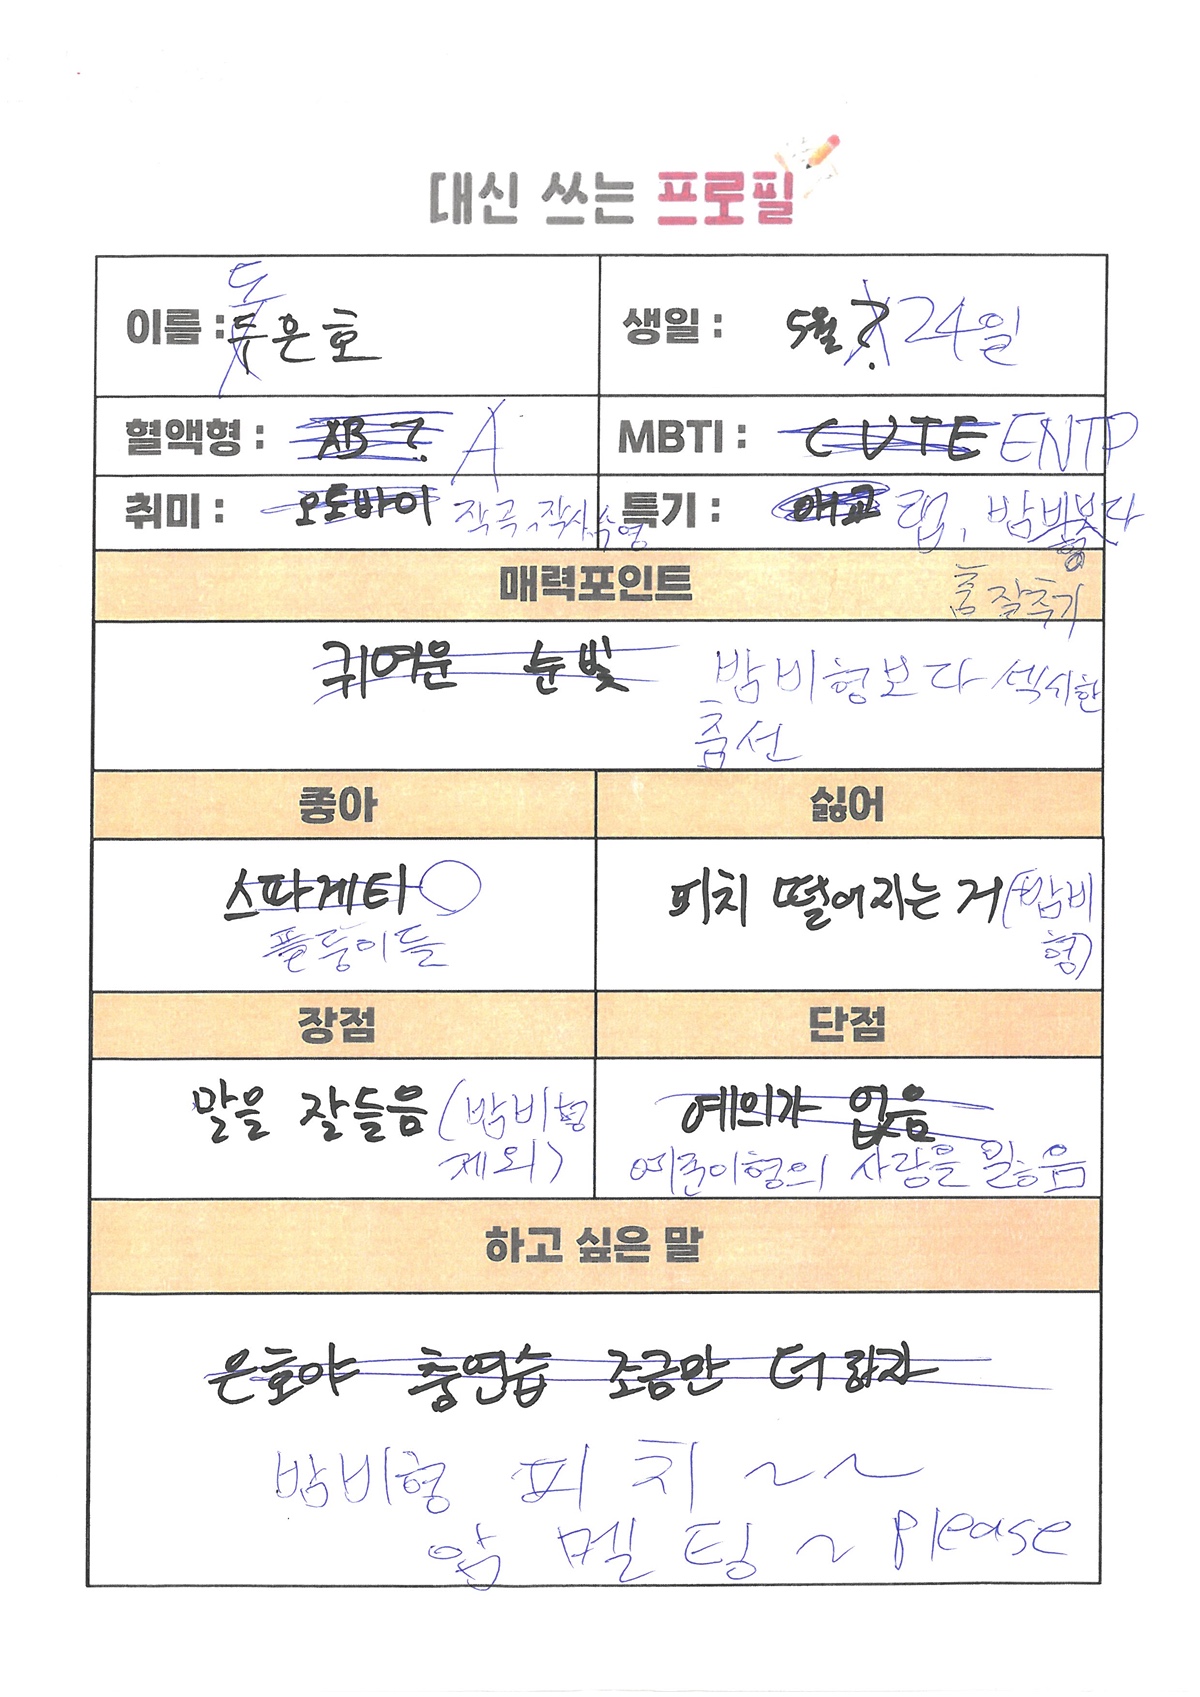 대신 쓰는 프로필
도
이름 : 두은호
생일 : 5월 ? 24일
혈액형 : AB ? A
MBTI : CUTE ENTP
취미 : 오토바이 작곡, 작사, 수영
특기 : 애교 랩, 밤비보다
형
춤 잘추기
매력포인트
귀여운 눈빛 밤비형보다 섹시한
춤선
좋아
싫어
스파게티
플둥이들
피치 떨어지는 거 (밤비
형)
장점
단점
말을 잘들음 (밤비형
제외)
예의가 없음
예준이형의 사랑을 잃음
하고 싶은 말
은호야 춤연습 조금만 더 하자
밤비형 피치 ~~
암 멜팅 ~ please